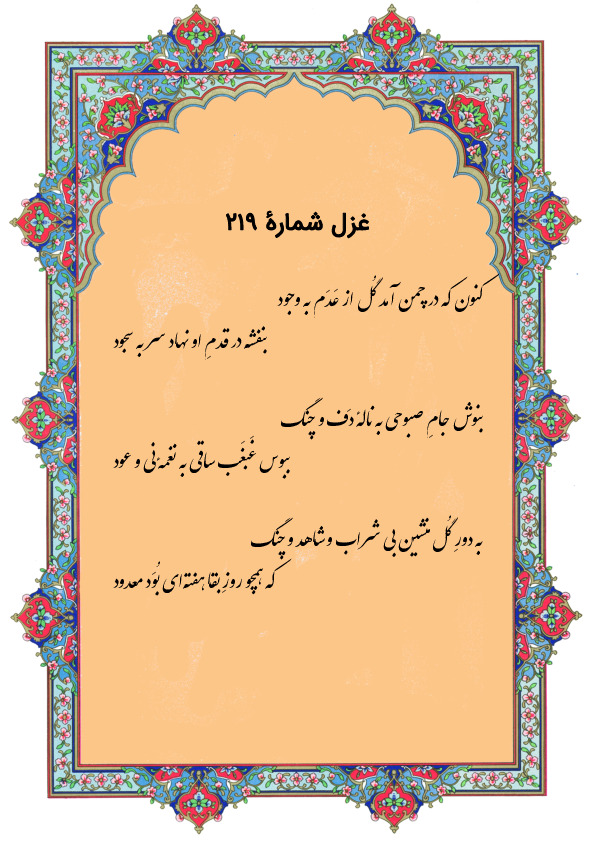 غزل شمارهٔ ۲۱۹
کنون که در چمن آمد گُل از عَدَم به وجود
بنفشه در قدمِ او نهاد سر به سجود
بنوش جامِ صبوحی به نالهٔ دف و چنگ
ببوس غَبغَبِ ساقی به نغمهٔ نی و عود
به دورِ گُل منشین بی شراب و شاهد و چنگ
که همچو روزِ بقا هفته‌ای بُوَد معدود